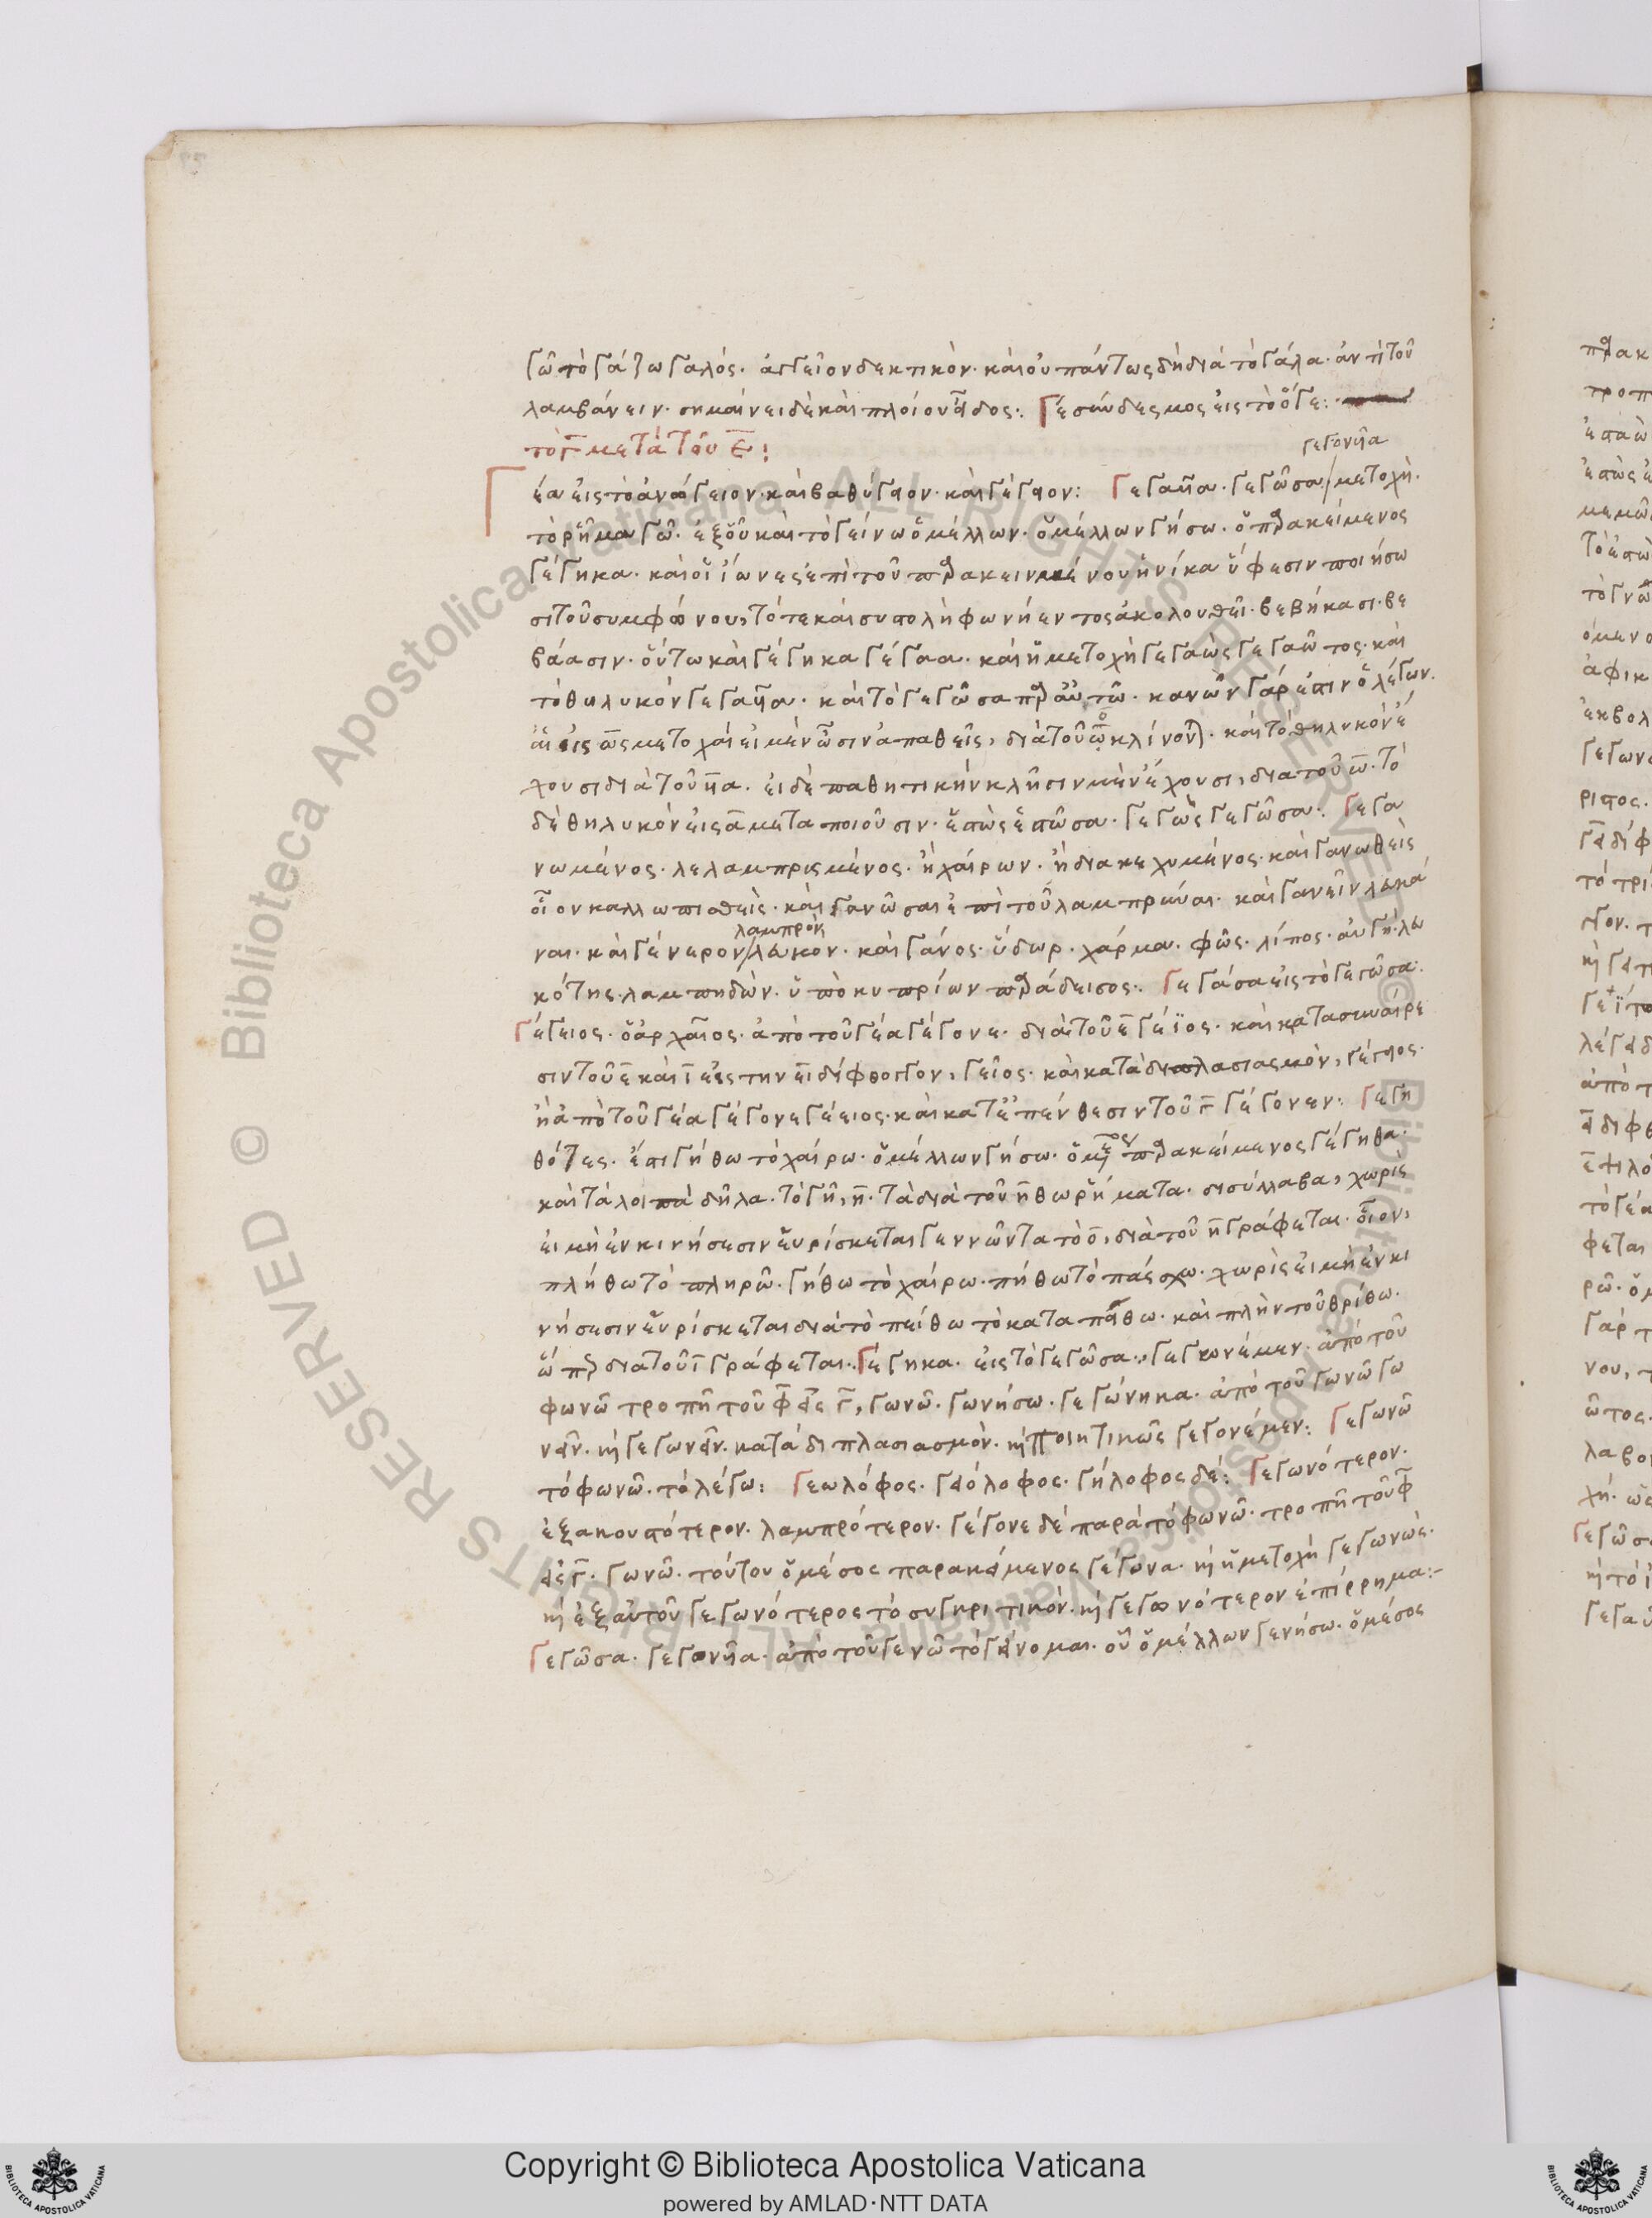 γῶ τὸ γάζω γαλός· ἀγγεῖον δεκτικὸν· καὶ οὐ πάντως δὴ διὰ τὸ γάλα· ἀντὶ τοῦ
λαμβάνειν· σημαίνει δὲ καὶ πλοίου εἶδος: Γέ σύνδεσμος εἰς τὸ ὅγε:
τὸ γ μετὰ τοῦ ε:
γεγονῖα
Γέα εἰς τὸ ἀνώγειον· καὶ βαθύγειον· καὶ γέγειον: Γεγαυῖα· γεγῶσα / μετοχὴ·
τὸ ῥῆμα γῶ· ἐξ οὗ καὶ τὸ γείνω ὁ μέλλων· ὁ μέλλων γήσω· ὁ πρακείμενος
γέγηκα· καὶ οἱ ἴωνες ἐπὶ τοῦ πρακειμένου ἡνίκα ὕφεσιν ποιήσω
σι τοῦ συμφώνου, τότε καὶ συστολὴ φωνήεντος ἀκολουθεῖ· βεβήκασι· βε
βάασιν· οὕτω καὶ γέγηκα γέγαα· καὶ ἡ μετοχὴ γεγαὼς γεγαῶτος· καὶ
τὸ θηλυκὸν γεγαυῖα· καὶ τὸ γεγῶσα πρ αὐτῶ· κανὼν γάρ ἐστιν ὁ λέγων·
αἱ εἰς ως μετοχαὶ εἰ μὲν ὦσιν ἀπαθεῖς, διὰ τοῦ ο κλίνονται· καὶ τὸ θηλυκὸν ἔ
χουσι διὰ τοῦ υια· εἰ δὲ παθητικὴν κλῆσιν μὲν ἔχουσι, δια τοῦ ω· τὸ
δὲ θηλυκὸν εἰς α μεταποιοῦσιν· ἑστὼς ἑστῶσα· γεγὼς γεγῶσα: Γεγα
νωμένος· λελαμπρισμένος· ἢ χαίρων· ἢ διακεχυμένος· καὶ γανωθεὶς
οἷον καλλωπισθεὶς· καὶ γανῶσαι ἐπὶ τοῦ λαμπρύναι· καὶ γανεῖν λευκά
λαμπρὸν
ναι· καὶ γάνερον / λευκὸν· καὶ γάνος· ὕδωρ· χάρμα· φῶς· λίπος· αὐγή· λευ
κότης· λαμπηδὼν· ὑπὸ κυπρίων πράδεισος: Γεγάσα εἰς τὸ γεγῶσα:
Γέγειος· ὁ ἀρχαῖος· ἀπὸ τοῦ γέα γέγονε· διὰ τοῦ ε γέϊος· καὶ κατασυναίρε
σιν τοῦ ε καὶ ι εἰς την ει δίφθογγον, γεῖος· καὶ κατὰ διπλασιασμὸν, γέγειος·
ἢ ἀπὸ τοῦ γέα γέγονε γέειος· καὶ κατ' ἐπένθεσιν τοῦ γ γέγονεν: Γεγη
θότες· ἐπὶ γήθω τὸ χαίρω· ὁ μέλλων γήσω· ὁ μέσος πρακείμενος γέγηθα·
καὶ τὰ λοιπὰ δῆλα· τὸ γῆ, η· τὰ διὰ τοῦ ηθω ῥήματα· δισύλλαβα, χωρὶς
εἰ μὴ ἐν κινήσεσιν εὑρίσκεται γεννῶντα τὸ ο, διὰ τοῦ η γράφεται· οἷον,
πλήθω τὸ πληρῶ· γήθω τὸ χαίρω· πήθω τὸ πάσχω· χωρὶς εἰ μὴ ἐν κι
νήσεσιν εὑρίσκεται διὰ τὸ πείθω τὸ καταπείθω· καὶ πλὴν τοῦ θρίθω·
ὥσπερ δια τοῦ ι γράφεται: Γέγηκα· εἰς τὸ γεγῶσα: γεγωνέμεν· ἀπὸ τοῦ
φωνῶ τροπῆ τοῦ φ εἰς γ, γωνῶ· γωνήσω· γεγώνηκα· ἀπὸ τοῦ γωνῶ γω
νεῖν· κὴ γεγωνεῖν· κατὰ διπλασιασμὸν· κὴ ποιητικῶς γεγονέμεν: Γεγωνῶ
τὸ φωνῶ· τὸ λέγω: Γεωλόφος· γεόλοφος· γήλοφος δέ: Γεγωνότερον·
ἐξακουστότερον· λαμπρότερον· γέγονε δὲ παρὰ τὸ φωνῶ· τροπῆ τοῦ φ
εἰς γ· γωνῶ· τούτου ὁ μέσος παρακείμενος γέγωνα· κὴ ἡ μετοχὴ γεγωνὼς·
κὴ ἐξ αὐτοῦ γεγωνότερος τὸ συγκριτικὸν· κὴ γεγωνότερον ἐπίρρημα:-
Γεγῶσα· γεγονυῖα· ἀπὸ τοῦ γενῶ τὸ γίνομαι· οὗ ὁ μέλλων γενήσω· ὁ μέσος
Copyright © Biblioteca Apostolica Vaticana
powered by AMLAD·NTT DATA